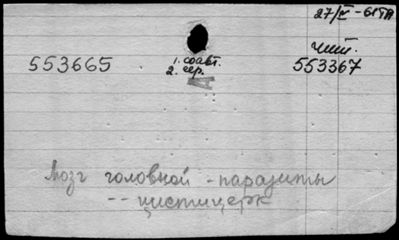 27/IV-61 
чит.
553665 1. соавт. 553367
2. сер.
А
Мозг головной - паразиты
-- цистицерк